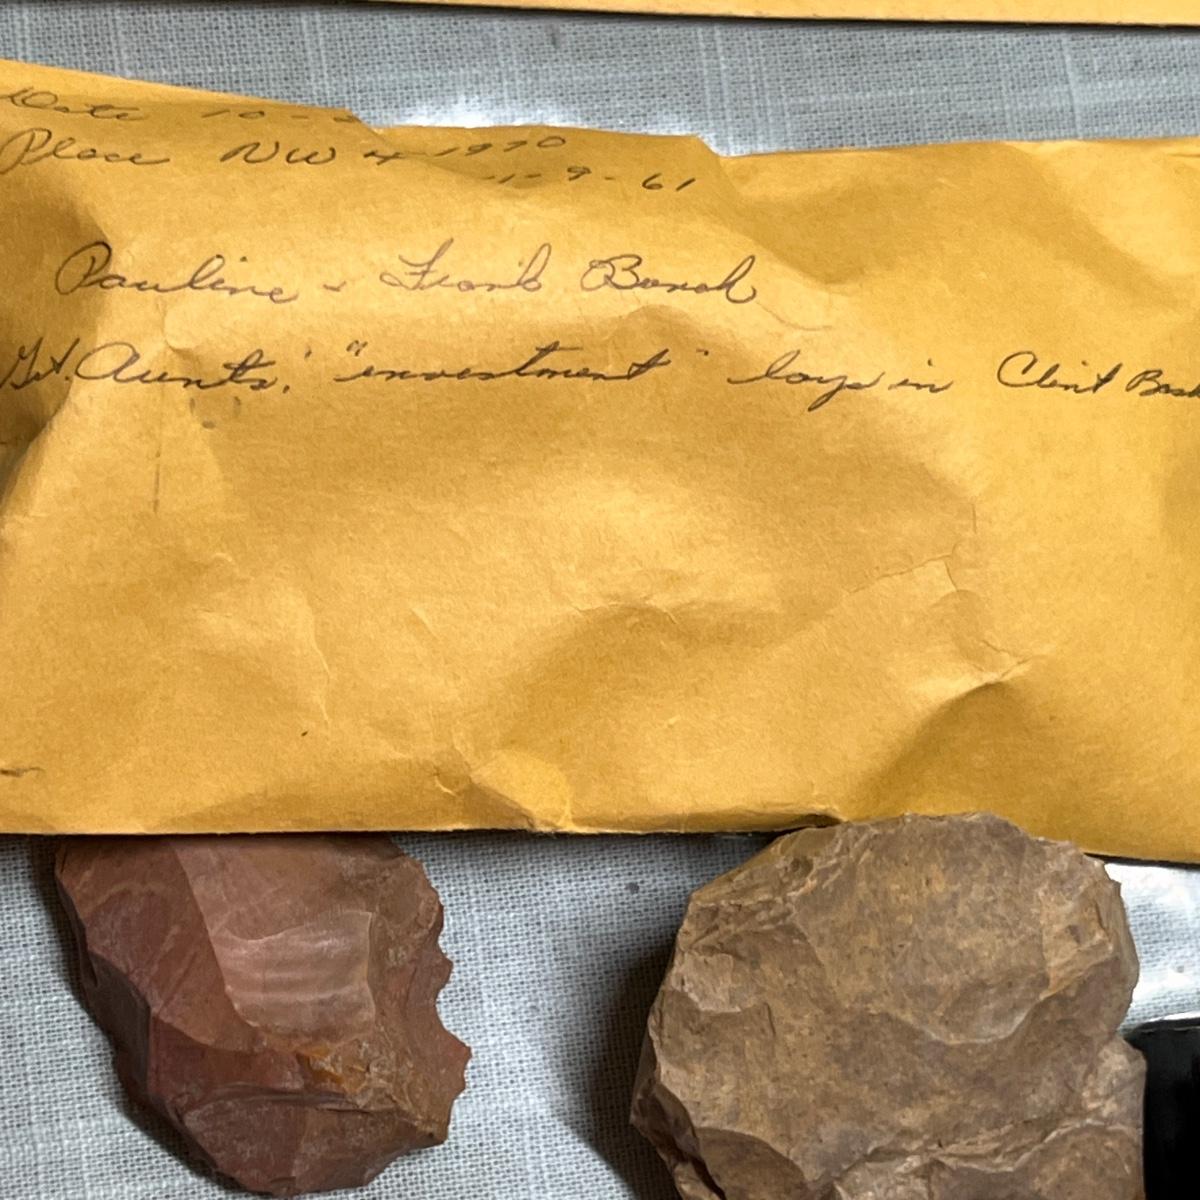 Date 10-
Place NW 4 1970
1-9-61
Pauline & Frank
Gt. Aunts' "investment" in Clint